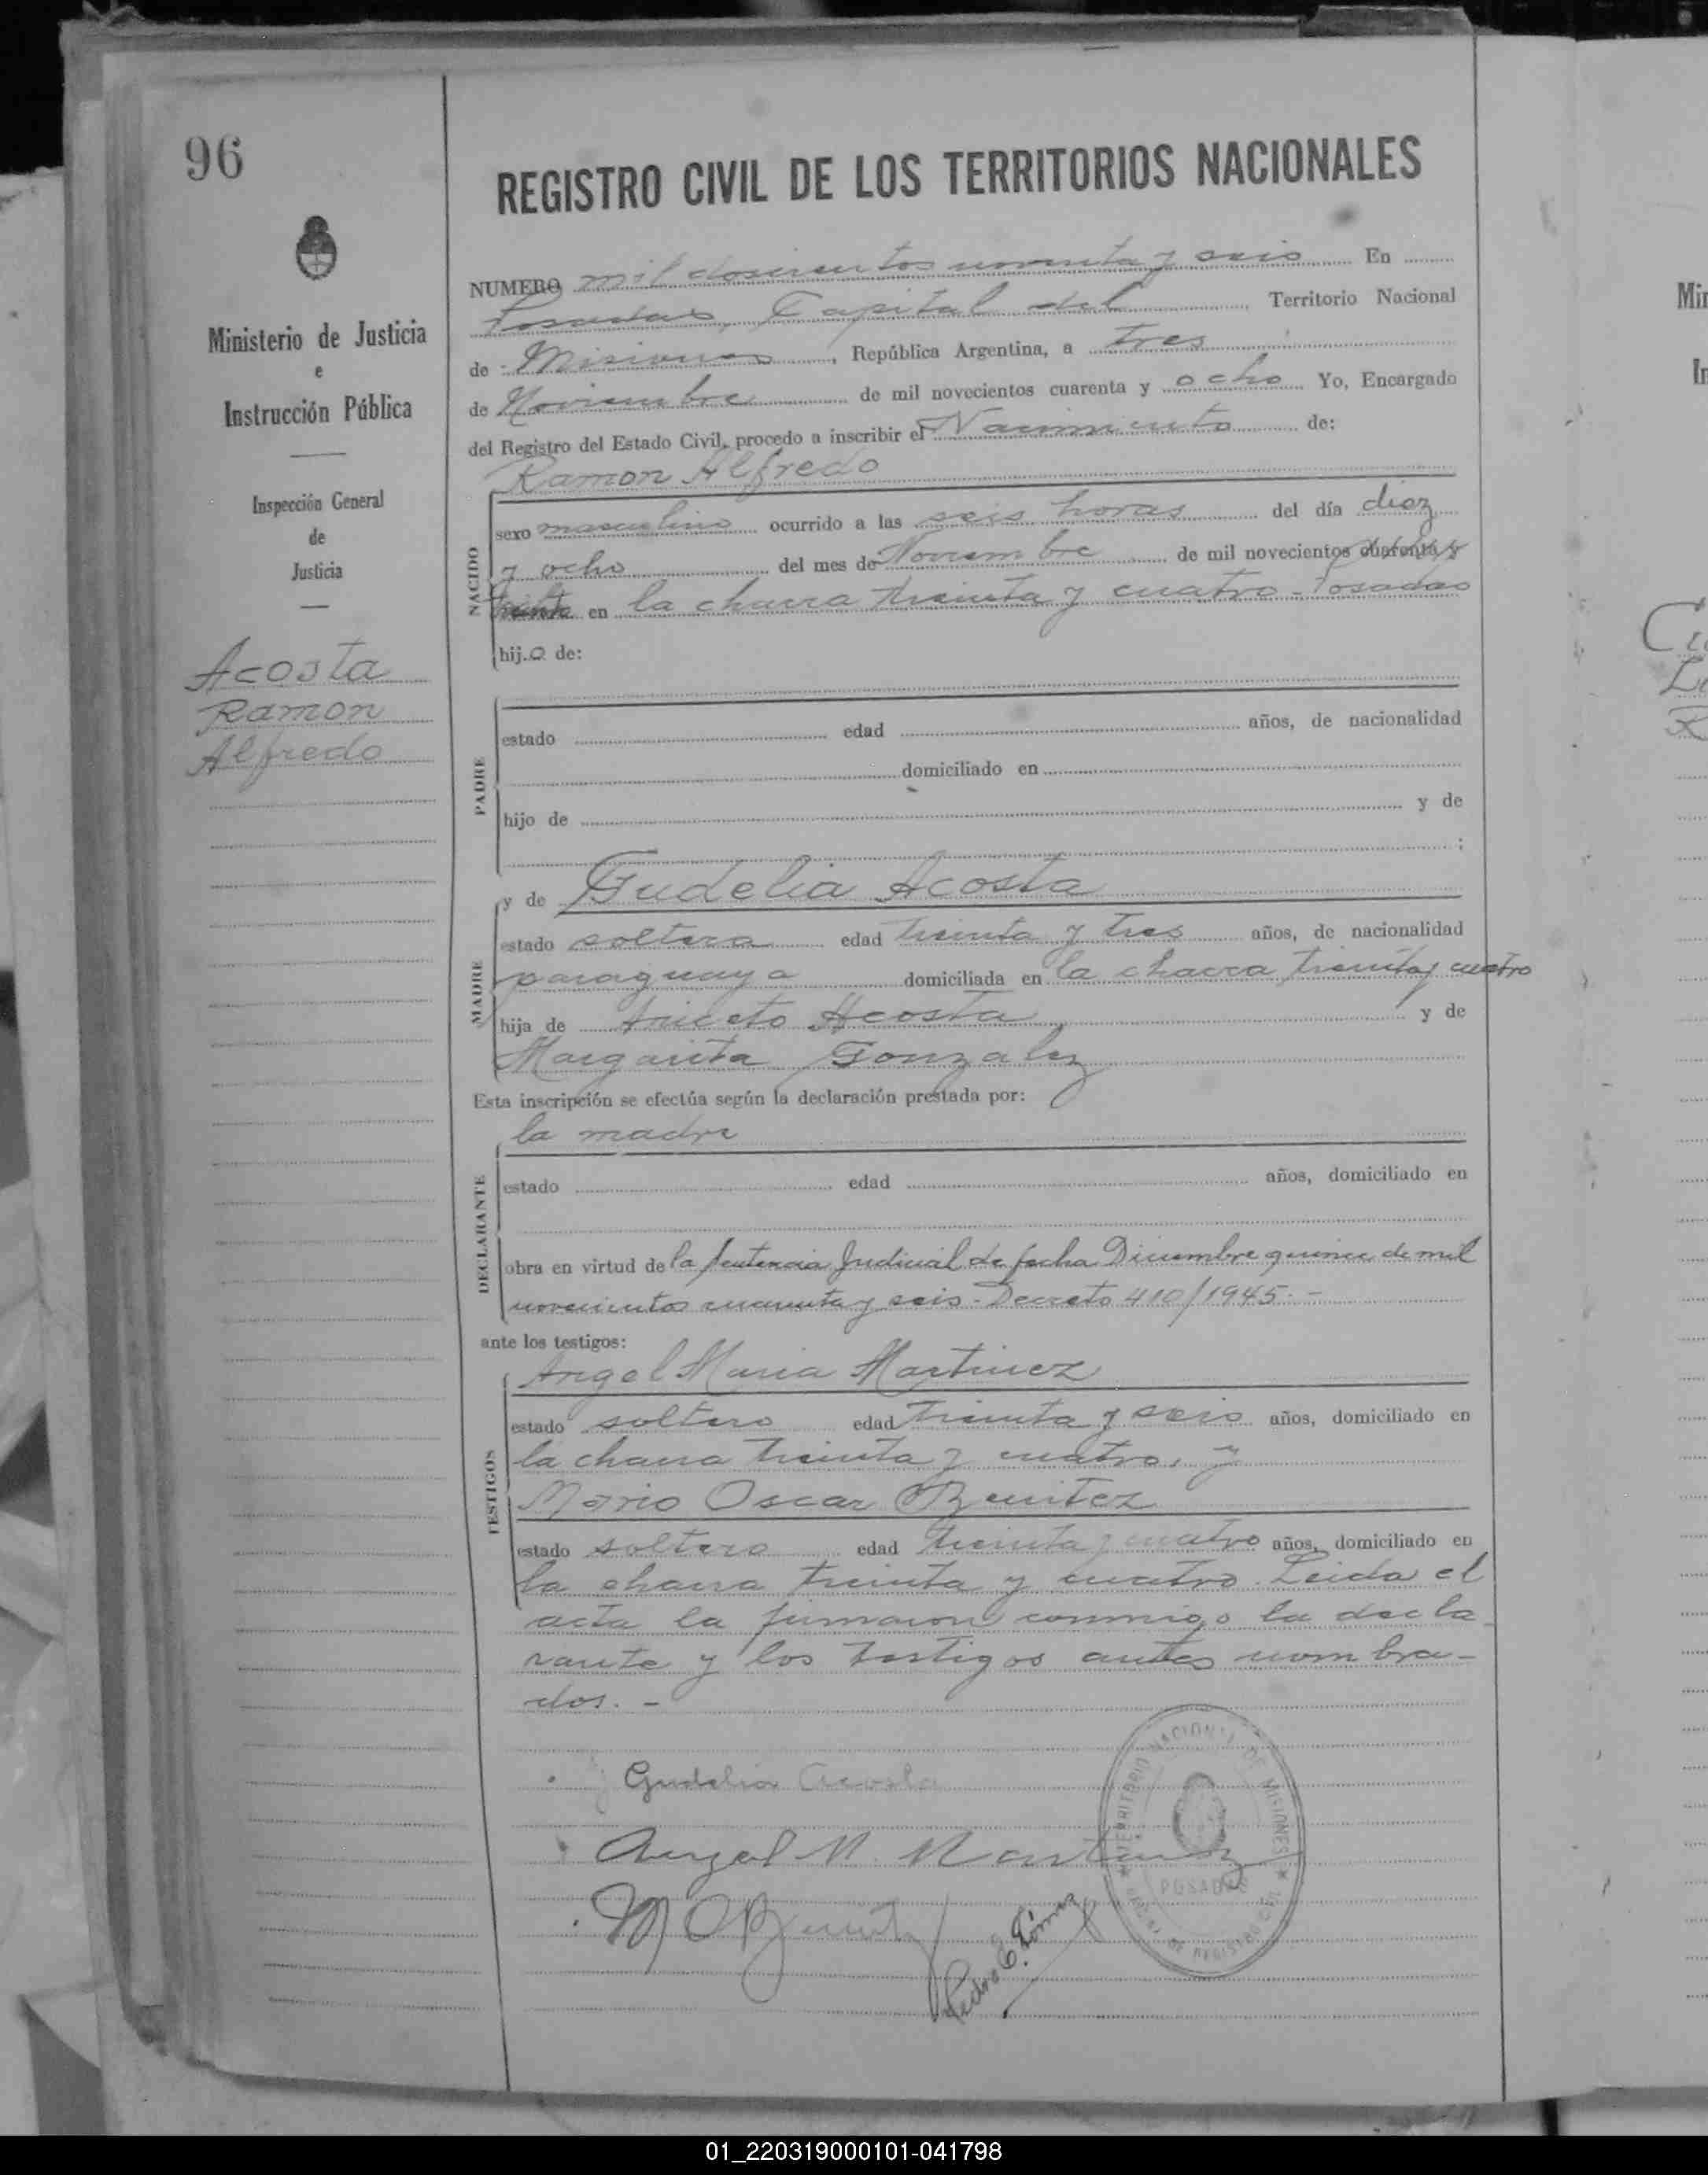 96
REGISTRO CIVIL DE LOS TERRITORIOS NACIONALES
Ministerio de Justicia
e
Instrucción Pública
Inspección General
de
Justicia
Acosta
Ramon
Alfredo
NUMERO mil doscientos noventa y seis En
Posadas, Capital del Territorio Nacional
de Misiones, República Argentina, a tres
de Noviembre de mil novecientos cuarenta y ocho Yo, Encargado
del Registro del Estado Civil, procedo a inscribir el Nacimiento de:
Ramon Alfredo
NACIDO
sexo masculino ocurrido a las seis horas del día diez
y ocho del mes de Noviembre de mil novecientos cuarenta y
treinta en la chacra treinta y cuatro - Posadas
hijo de:
PADRE
estado edad años, de nacionalidad
domiciliado en
hijo de y de
;
MADRE
y de Gudelia Acosta
estado soltera edad treinta y tres años, de nacionalidad
paraguaya domiciliada en la chacra treinta y cuatro
hija de Aniceto Acosta, y de
Margarita Gonzalez
Esta inscripción se efectúa según la declaración prestada por:
la madre
DECLARANTE
estado edad años, domiciliado en
obra en virtud de la Sentencia Judicial de fecha Diciembre quince de mil
novecientos cuarenta y seis - Decreto 410/1945. -
ante los testigos:
TESTIGOS
Angel Maria Martinez
estado soltero edad treinta y seis años, domiciliado en
la chacra treinta y cuatro, y
Mario Oscar Benitez
estado soltero edad treinta y cuatro años, domiciliado en
la chacra treinta y cuatro. Leida el
acta la firmaron conmigo la decla
rante y los testigos antes nombra-
dos. -
Gudelia Acosta
Angel M. Martinez
M O Benitez
Pedro E. Gómez
TERRITORIO NACIONAL DE MISIONES
POSADAS
DE REGISTRO CIVIL
Min
In
01_220319000101-041798